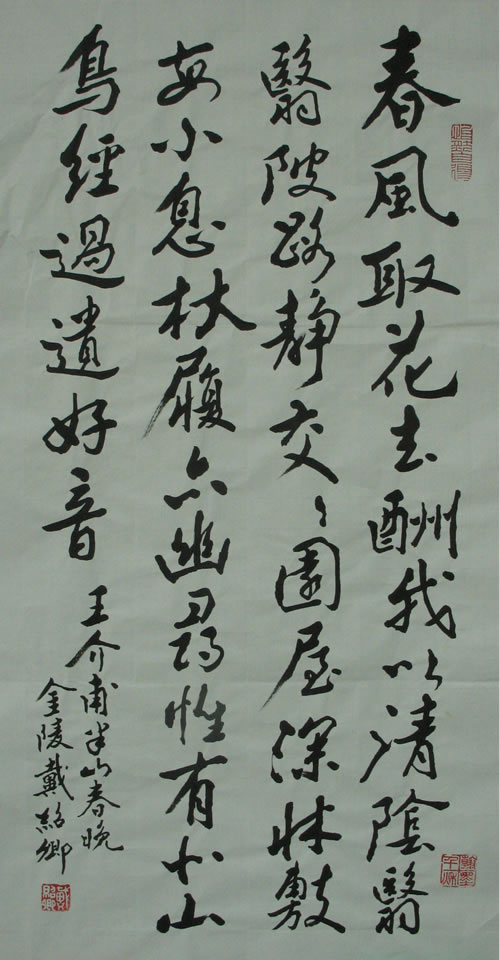 春風取花去酬我以清陰翳
翳陂路靜交〻園屋深牀敷
每小息杖履亦幽尋惟有北山
鳥經過遺好音
王介甫半山春晚
金陵戴紹卿